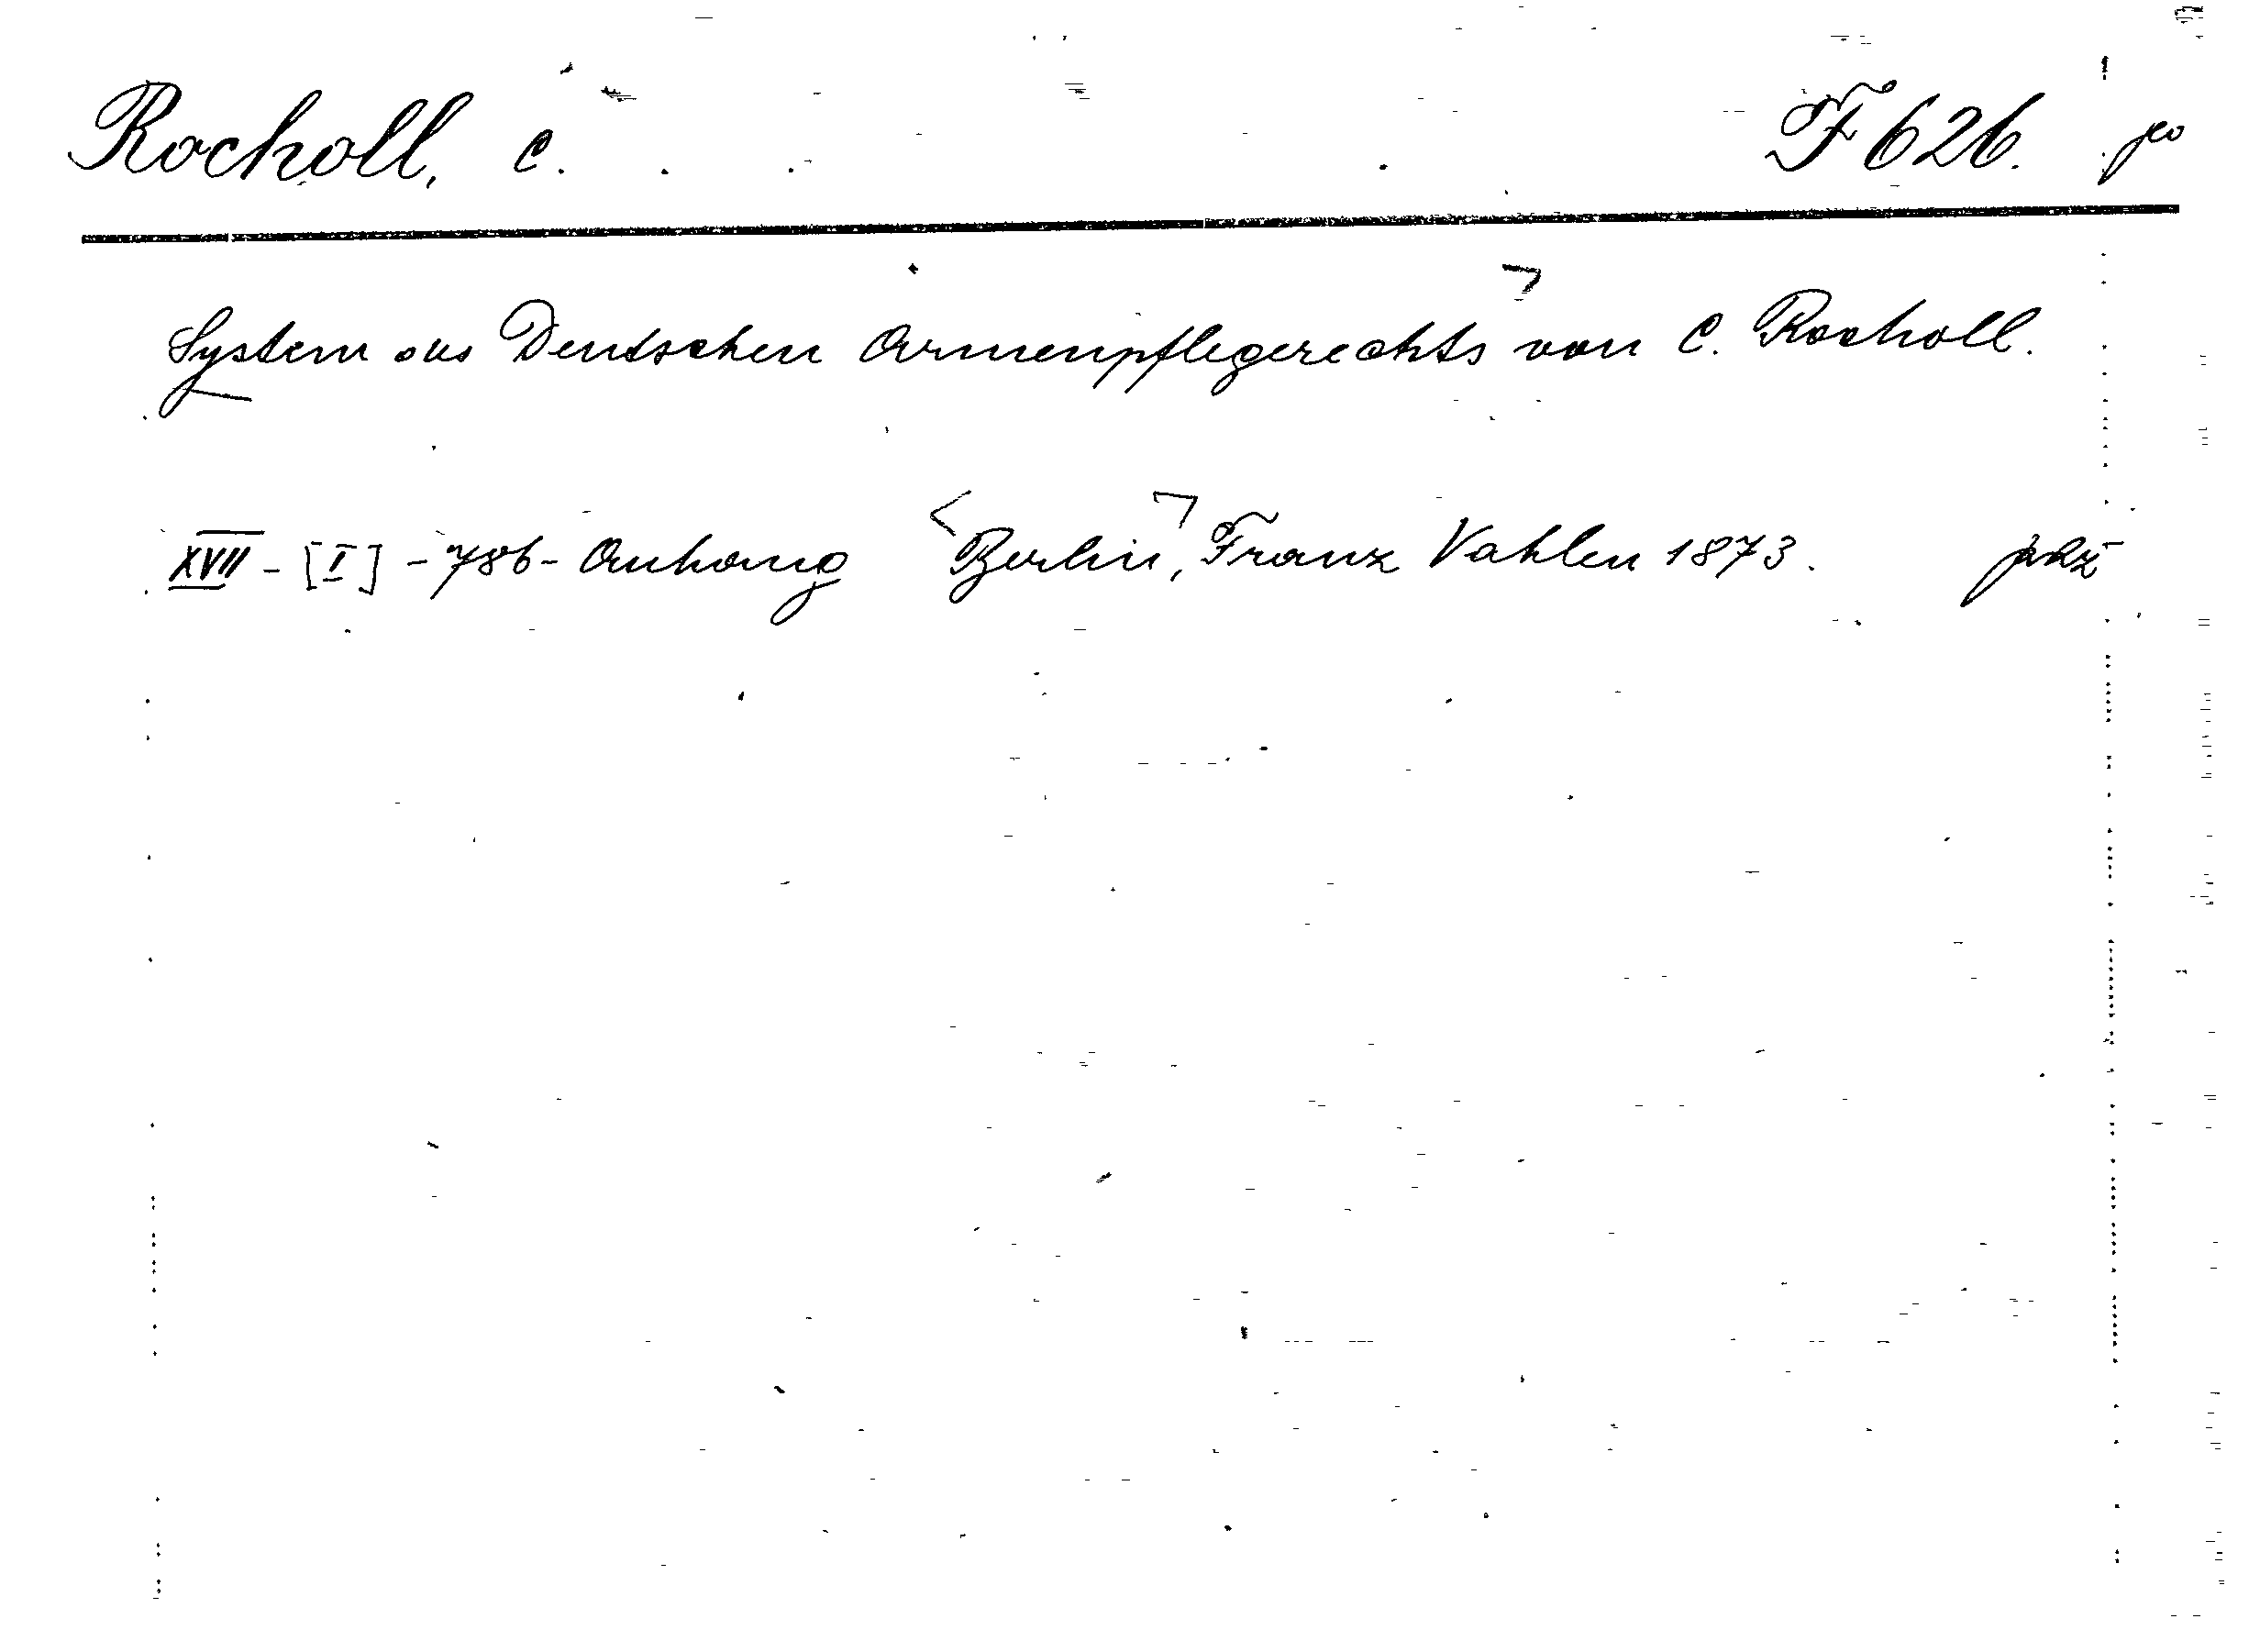 Rocholl, C. F 626.
System des Deutschen Armenpflegerechts von C. Rocholl.
XVII - [I] - 786 - Anhang <Berlin, Franz Vahlen 1873.